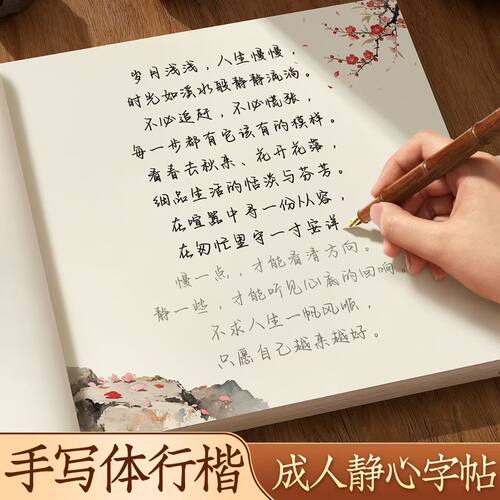 岁月浅浅，人生慢慢，
时光如溪水般静静流淌。
不必追赶，不必慌张，
每一步都有它该有的模样。
看春去秋来、花开花落，
细品生活的恬淡与芬芳。
在喧嚣中寻一份从容，
在匆忙里守一寸安详
慢一点，才能看清方向，
静一些，才能听见心底的回响。
不求人生一帆风顺，
只愿自己越来越好。
手写体行楷
成人静心字帖